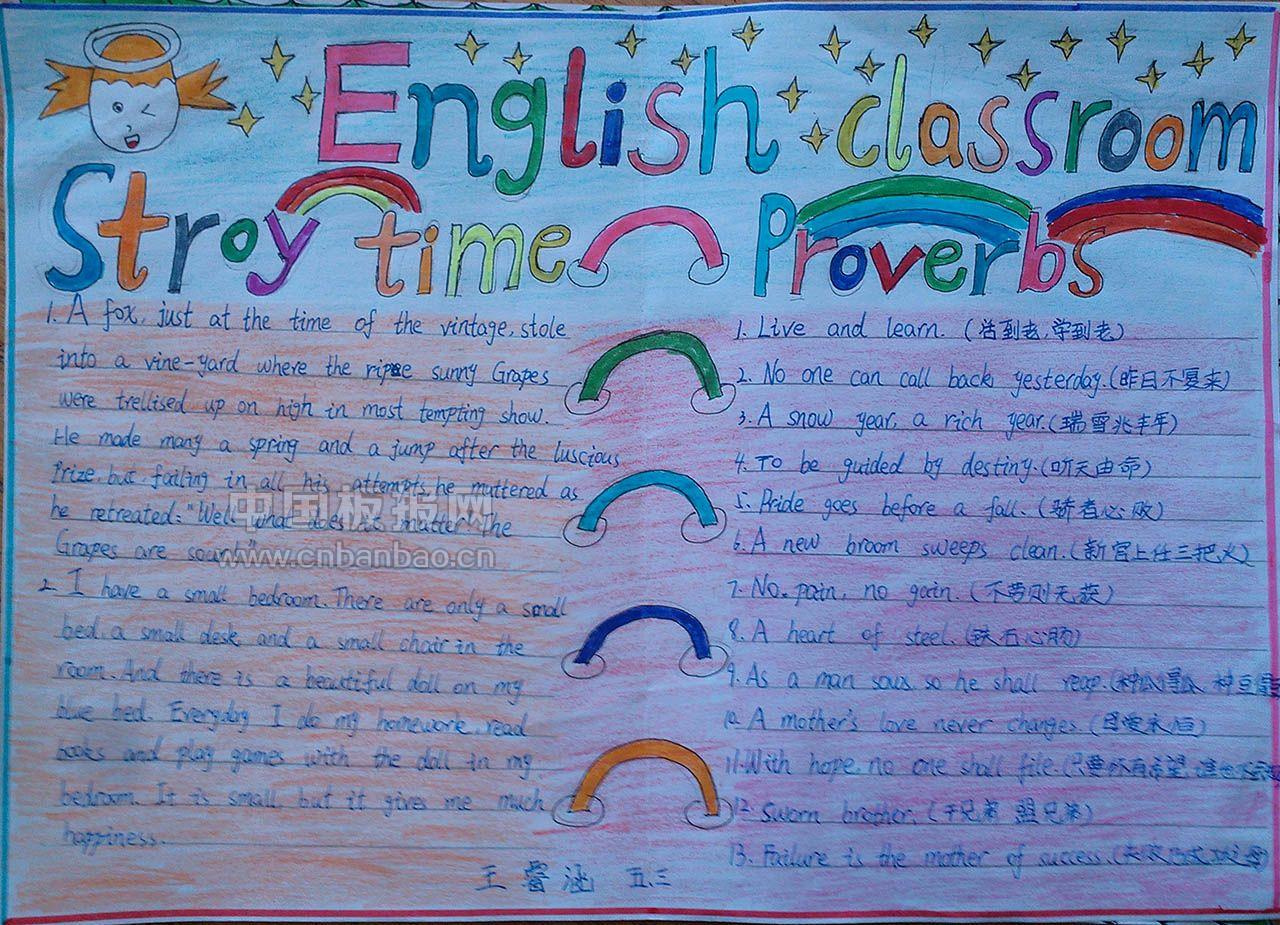 English classroom
Stroy time
1. A fox, just at the time of the vintage, stole
into a vine-yard where the ripe sunny Grapes
were trellised up on high in most tempting show.
He made many a spring and a jump after the luscious
Prize, but, failing in all his attempts, he muttered as
he retreated: "Well! what does it matter! The
Grapes are sour!"
2. I have a small bedroom. There are only a small
bed, a small desk and a small chair in the
room. And there is a beautiful doll on my
blue bed. Everyday I do my homework, read
books and play games with the doll in my
bedroom. It is small, but it gives me much
happiness.
Proverbs
1. Live and learn. (活到老,学到老)
2. No one can call back yesterday.(昨日不复来)
3. A snow year, a rich year.(瑞雪兆丰年)
4. To be guided by destiny.(听天由命)
5. Pride goes before a fall. (骄者必败)
6. A new broom sweeps clean.(新官上任三把火)
7. No. pain, no gain. (不劳则无获)
8. A heart of steel.(铁石心肠)
9. As a man sows, so he shall reap.(种瓜得瓜 种豆得
10. A mother's love never changes.(母爱永恒)
11. With hope, no one shall file.(只要怀有希望,谁也不会
12. Sworn brother. (干兄弟 盟兄弟)
13. Failure is the mother of success.(失败乃成功之母)
王睿涵 五.三
中国板报网
www.cnbanbao.cn